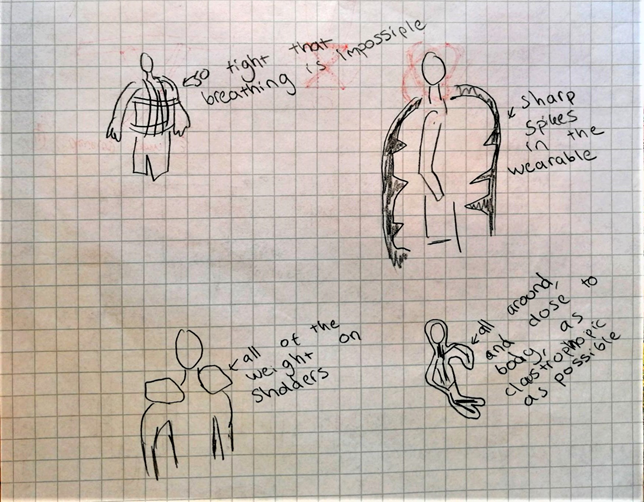 so tight that
breathing is impossiple
sharp
spikes
in the
wearable
all of the
weight on
sholders
all around,
and close to
body, as
clastrophopic
as possible